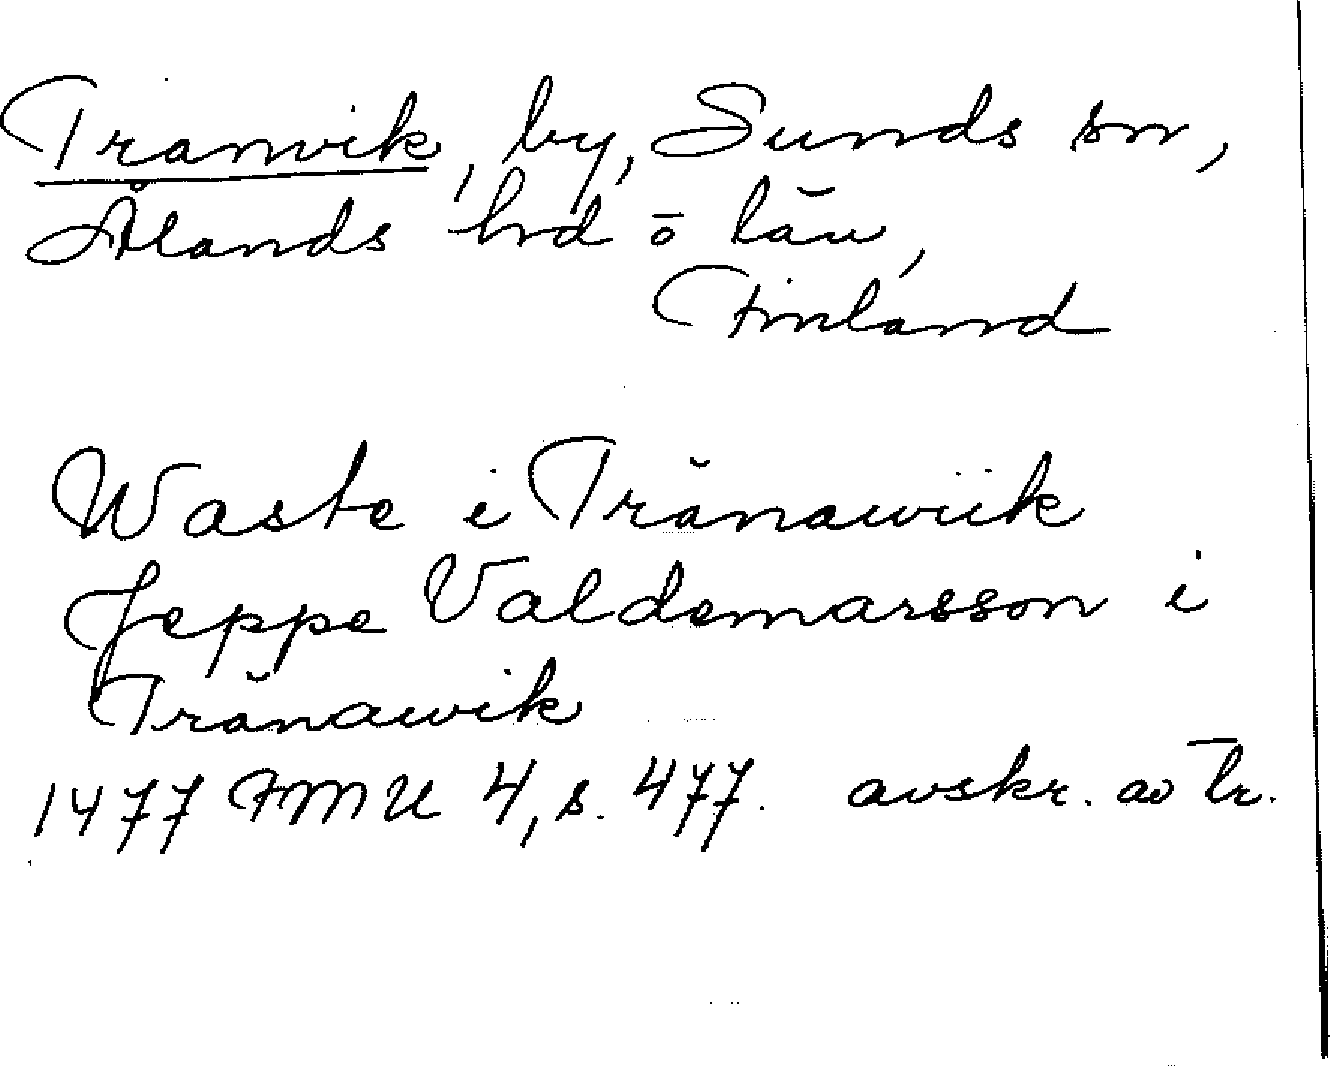 Tranvik, by, Sunds sn,
Ålands hrd ō län,
Finland
Waste i Trănawiik
Jeppe Valdemarsson i
Trănawik
1477 FMU 4, s. 477. avskr. av tr.